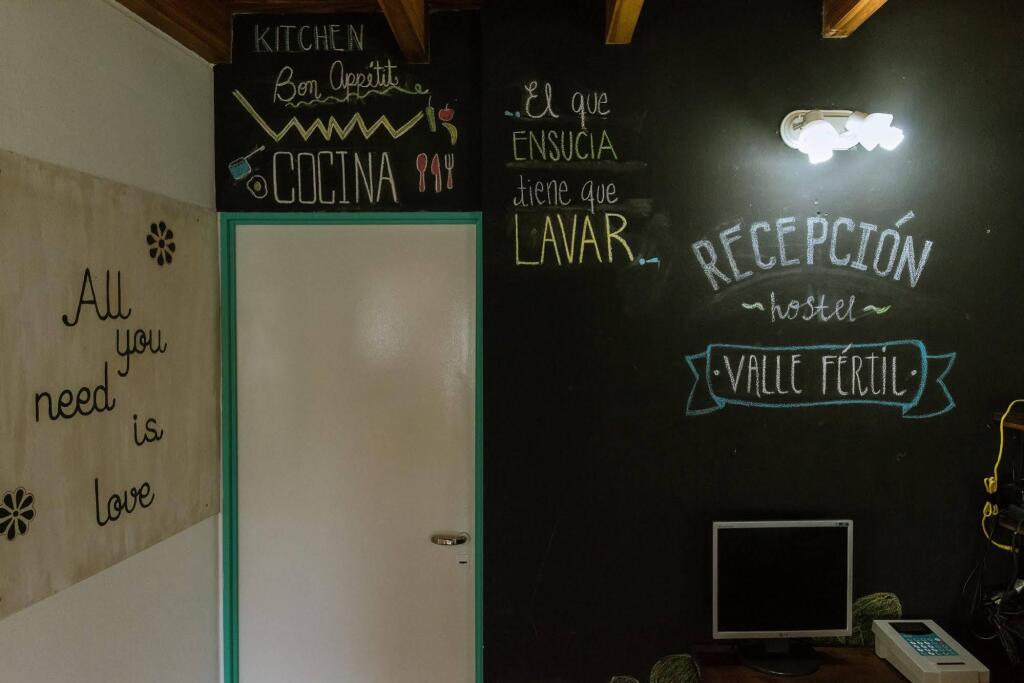 KITCHEN
Bon Appétit
COCINA
..El que
ENSUCIA
tiene que
LAVAR..
RECEPCIÓN
~hostel~
·VALLE FÉRTIL·
All
you
need
is
love